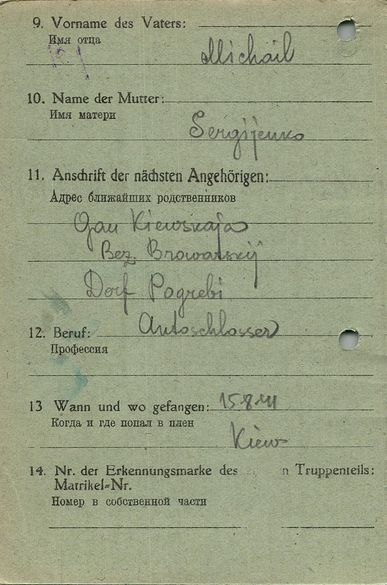 9. Vorname des Vaters:
Имя отца
Michail
10. Name der Mutter:
Имя матери
Sergijenko
11. Anschrift der nächsten Angehörigen:
Адрес ближайших родственников
Gau Kiewskaja
Bez. Browarskij
Dorf Pogrebi
Autoschlosser
12. Beruf:
Профессия
13 Wann und wo gefangen: 15.8.41
Когда и где попал в плен
Kiew
14. Nr. der Erkennungsmarke des n Truppenteils:
Matrikel-Nr.
Номер в собственной части